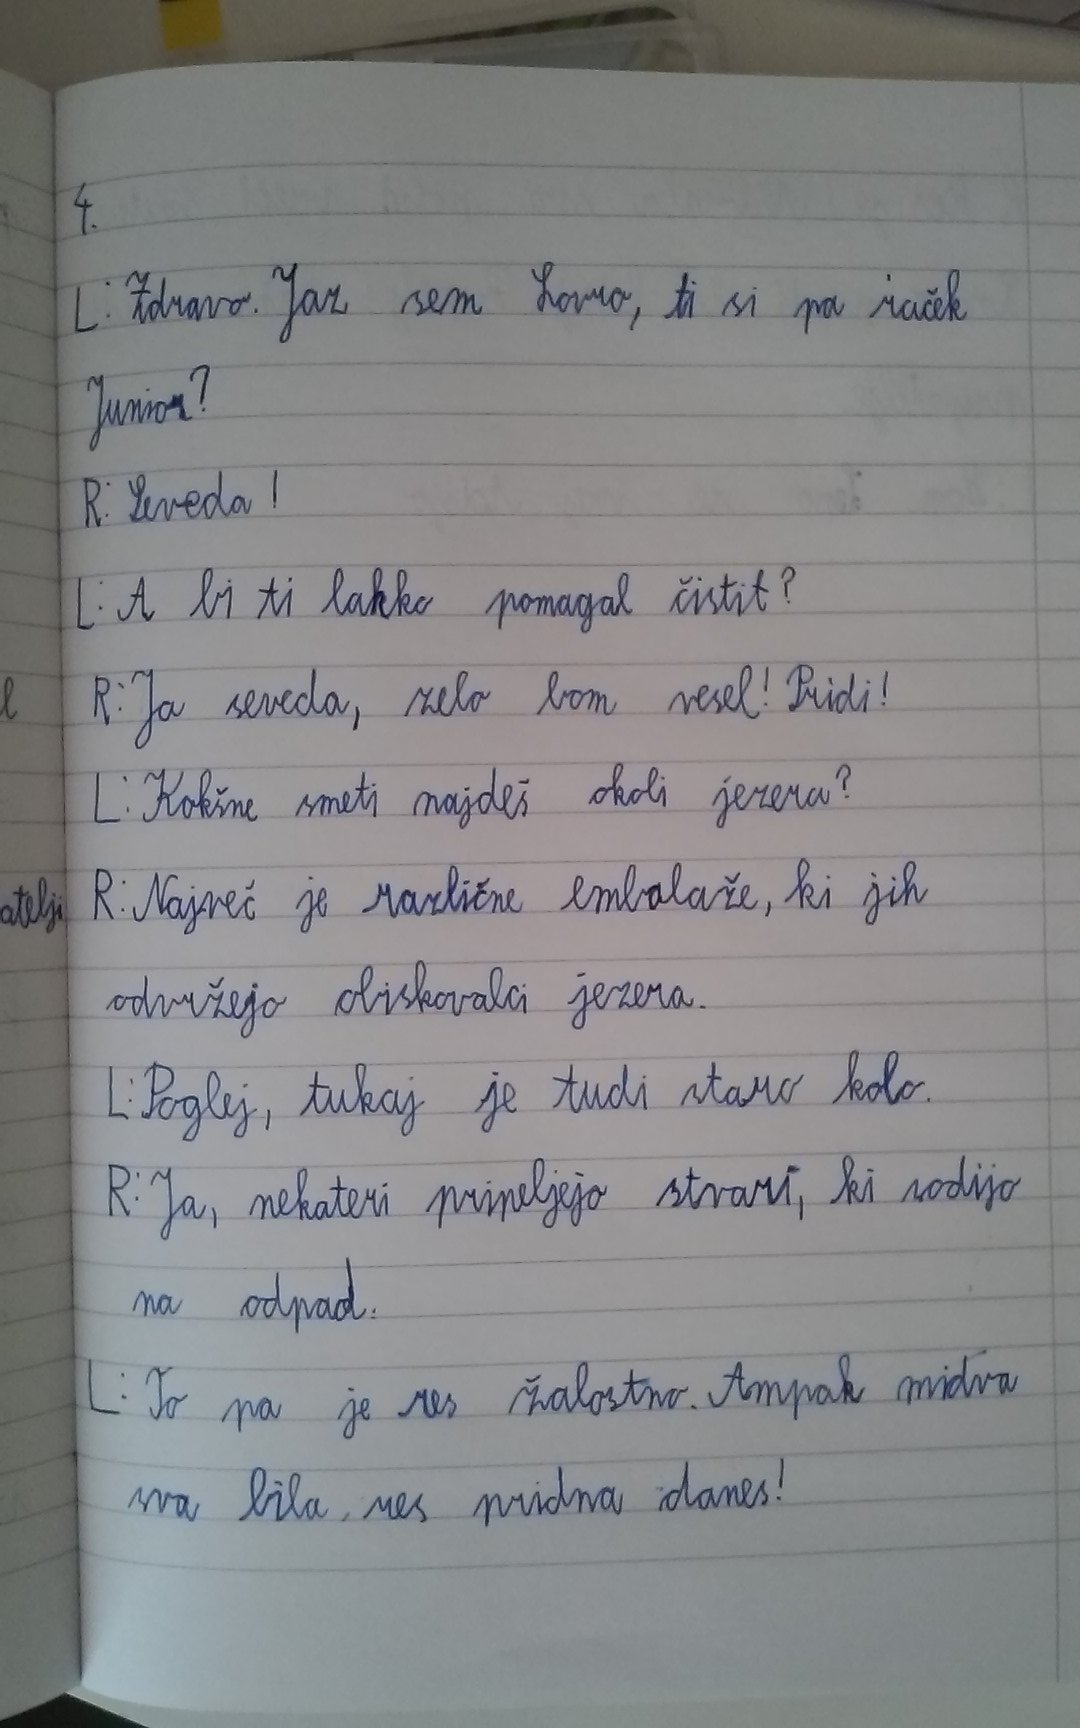 4.
L: Zdravo. Jaz sem Lovro, ti si pa raček
Junior?
R: Seveda!
L: A bi ti lahko pomagal čistit?
R: Ja seveda, zelo bom vesel! Pridi!
L: Kakšne smeti najdeš okoli jezera?
R: Največ je različne embalaže, ki jih
atelji
odvržejo obiskovalci jezera.
L: Poglej, tukaj je tudi staro kolo.
R: Ja, nekateri pripeljejo stvari, ki sodijo
na odpad.
L: To pa je res žalostno. Ampak midva
sva bila res pridna danes!